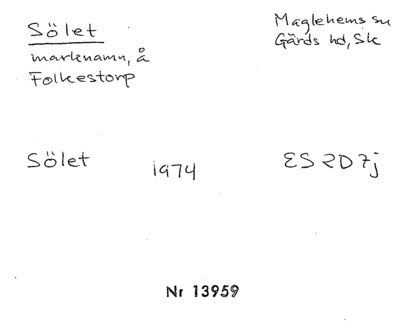 Sölet
marknamn, å
Folkestorp
Maglehems sn
Gärds hd, Sk
Sölet 1974 ES 2D7j
Nr 13959